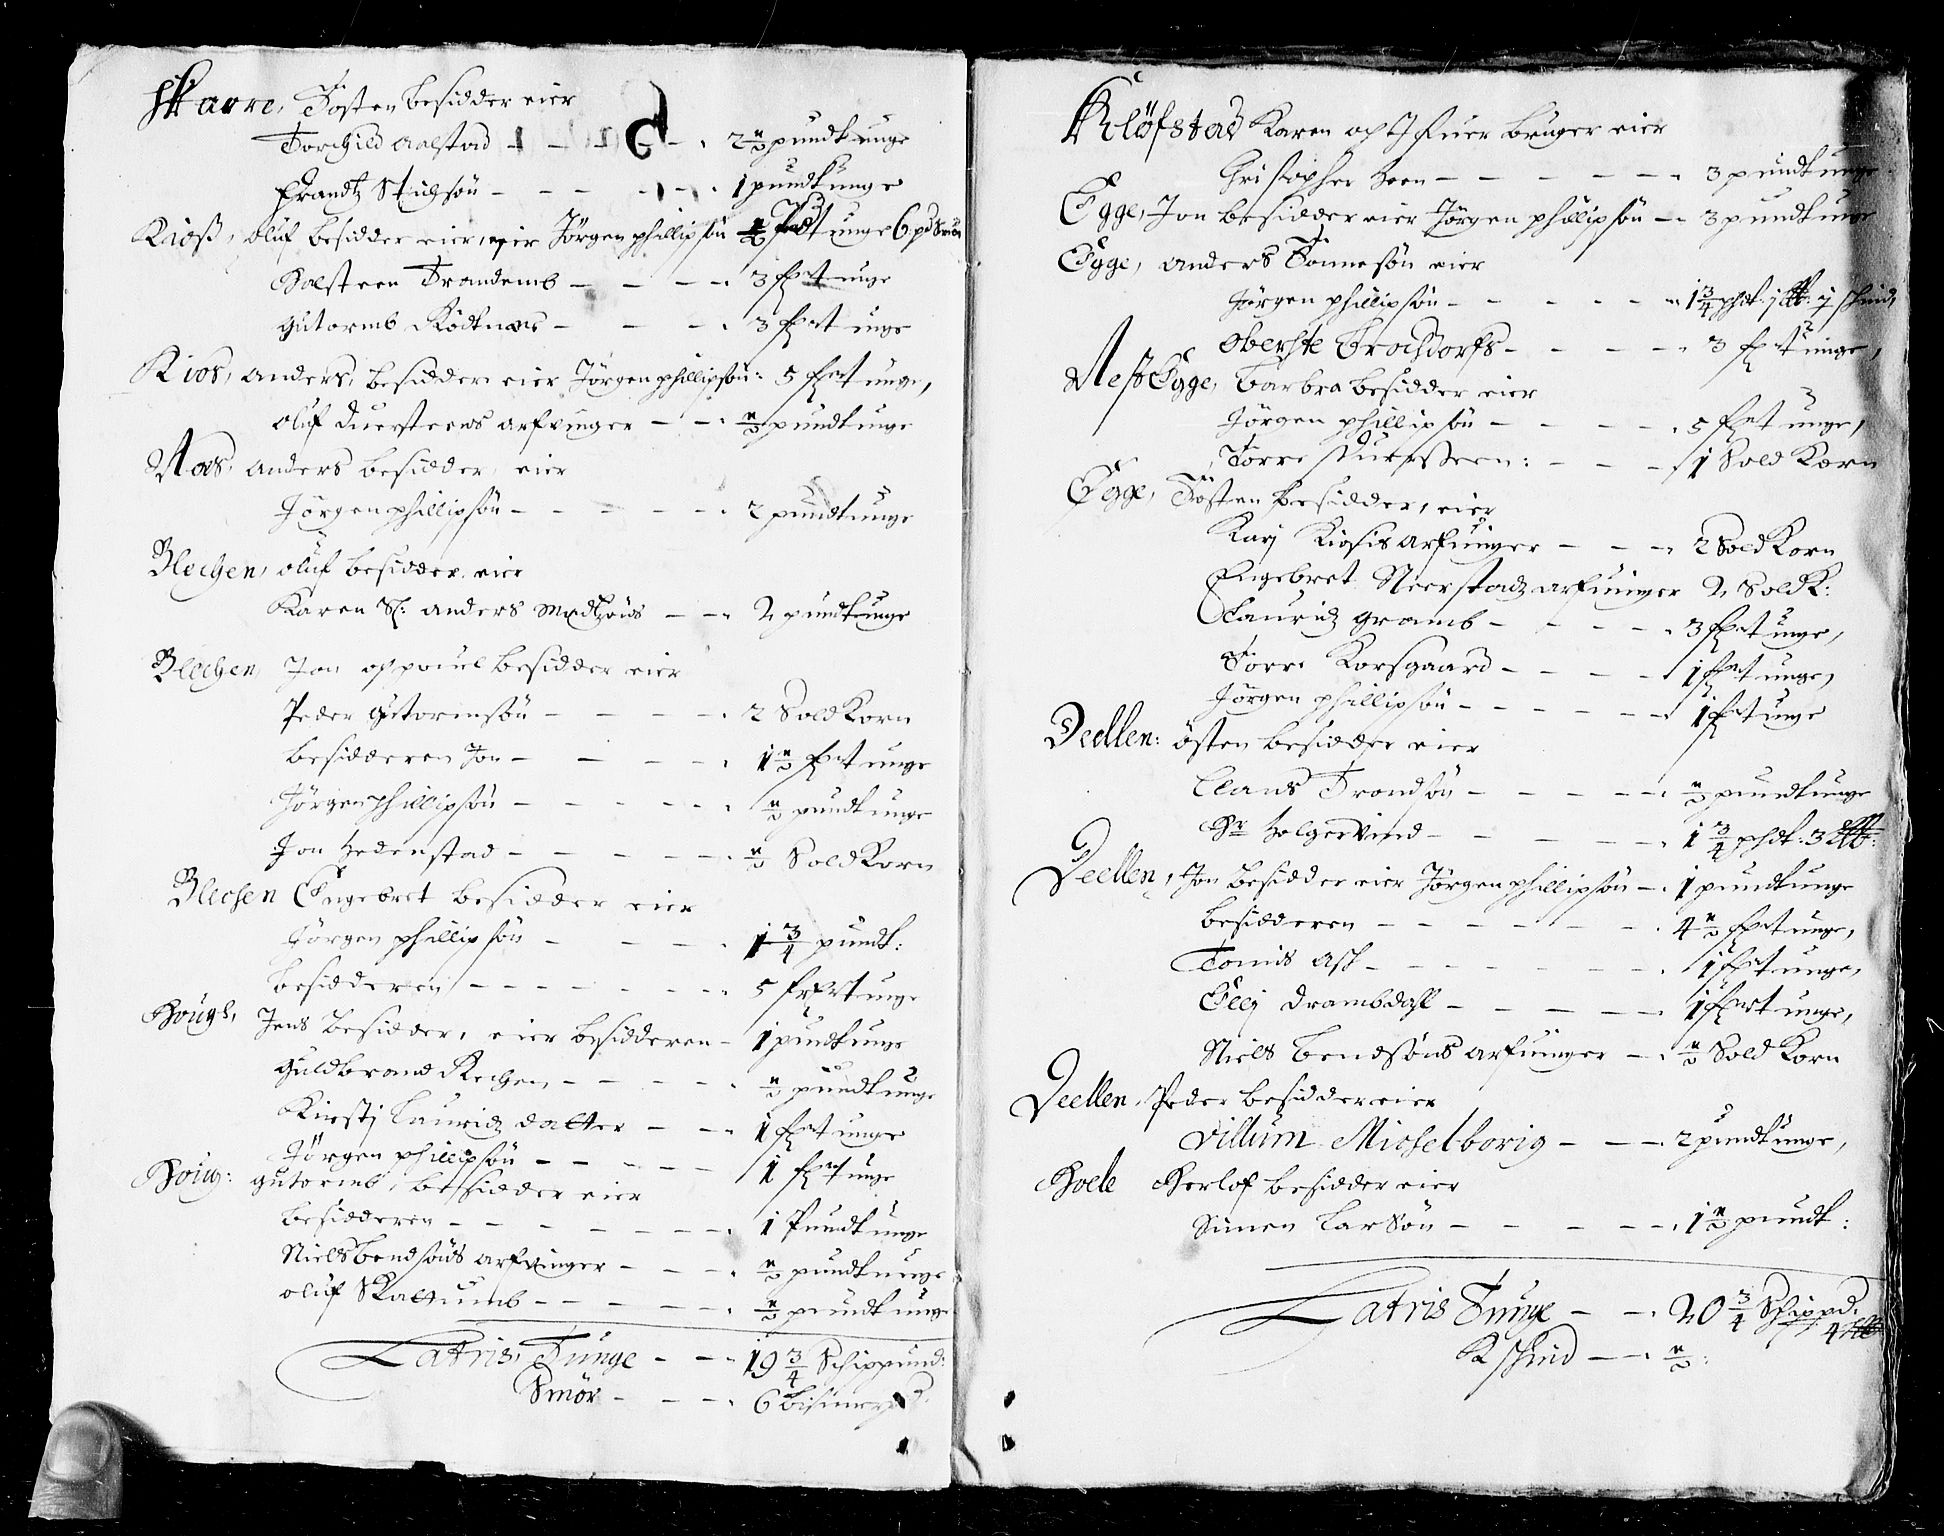 Skarre, Tosten besidder eier
Torchild Aalstad - - - 2½ pundt unge
Frandtz Stichsön - - - 1 pundt unge
Kiöß, Oluf besidder eier, Jörgen phillipsön unge 6 pd Smör
Halsteen Trandemb - - - 3 fist unge
Gutormb Rödtnæs - - - 3 fist unge
Kios, Anders, besidder eier Jörgen phillipsön: 5 fist unge,
Oluf Duesteens arfvinger - - ½ pundt unge
Næs, Anders besidder, eier
Jörgen phillipsön - - - 2 pundt unge
Blechen, Oluf besidder eier
Karen Sl: Anders Madtzöns - - 2 pundt unge
Blechen, Jon oc poul besidder eier
Peder Gutormsön - - - 2 Sold Korn
besidderen Jon - - - 1½ fist unge
Jörgen phillipsön - - - ½ pundt unge
Jon Hedenstad - - - ½ Sold Korn
Blechen Engebret besidder eier
Jörgen phillipsön - - - 1 3/4 pundt:
besidderen - - - 5 fist unge
Hougs, Jens besidder, eier besidderen - 1 pundt unge
Guldbrand Rechen - - - ½ pundt unge
Kirstj Lauridz datter - - 1 fist unge
Jörgen phillipsön - - - 1 fist unge
Houg: Gutormb, besidder eier
besidderen - - - 1 Pundt unge
Niels bendsöns arfvinger - - - ½ pundt unge
Oluf Skattumb - - - ½ pundt unge
Latris, Tunge - - 19 3/4 Schippund:
Smör - - - 6 bismerpd.
Klöfstad Karen oc J fuer bruger eier
Christopher Hoen - - - 3 pundt unge
Egge, Jon besidder eier Jörgen phillipsön - 3 pundt unge
Egge, Anders Tonnesön eier
Jörgen phillipsön - - - 1 3/4 phdt:
Oberste Brochdorfs - - - 3 fist unge,
Nest Egge, Barbra besidder eier
Jörgen phillipsön - - - 5 fist unge,
Torre Duesteen: - - - 1 Sold Korn
Egge, Tosten besidder, eier
Karj Kiosis Arfuinger - - - 2 Sold Korn
Engebret Neerstadz arfuinger 2 Sold K:
Lauridz Gramb - - - 3 fist unge,
Torre Korsgaard - - - 1 fist unge,
Jörgen phillipsön - - - 1 fist unge
Deellen: Östen besidder eier
Claus Trondsön - - - ½ pundt unge
Hr Holger Vind - - - 1 3/4 phdt: 3
Deellen, Jon besidder eier Jörgen phillipsön - 1 pundt unge
besidderen - - - 4½ fist unge,
Tomis Ask - - - 1 fist unge,
Ellj Drambdahl - - - 1 fist unge,
Niels bendsöns arfuinger - ½ Sold Korn
Deellen, Peder besidder eier
Villum Michelborig - - - 2 pundt unge,
Hoele Herlof besidder eier
Simen Larsön - - - 1½ pundt:
Latris Tunge - - 20 3/4 Schippd:
4
K shind - - ½: